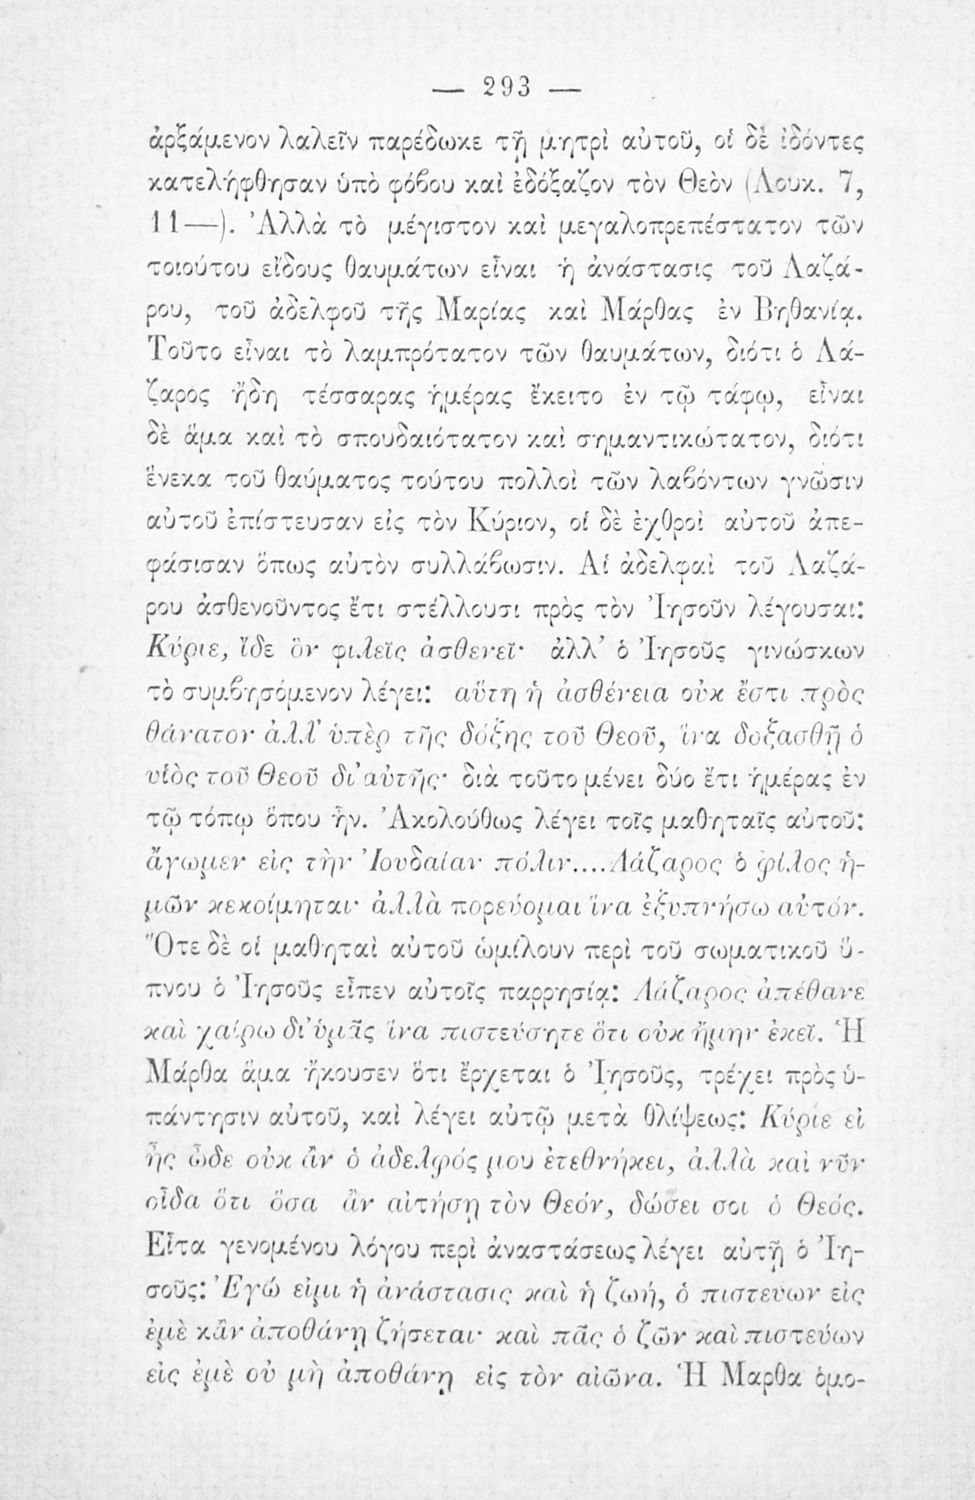 — 293 —
ἀρξάμενον λαλεῖν παρέδωκε τῇ μητρὶ αὐτοῦ, οἱ δὲ ἰδόντες
κατελήφθησαν ὑπὸ φόβου καὶ ἐδόξαζον τὸν Θεὸν (Λουκ. 7,
11—). Ἀλλὰ τὸ μέγιστον καὶ μεγαλοπρεπέστατον τῶν
τοιούτου εἴδους θαυμάτων εἶναι ἡ ἀνάστασις τοῦ Λαζά-
ρου, τοῦ ἀδελφοῦ τῆς Μαρίας καὶ Μάρθας ἐν Βηθανίᾳ.
Τοῦτο εἶναι τὸ λαμπρότατον τῶν θαυμάτων, διότι ὁ Λά-
ζαρος ἤδη τέσσαρας ἡμέρας ἔκειτο ἐν τῷ τάφῳ, εἶναι
δὲ ἅμα καὶ τὸ σπουδαιότατον καὶ σημαντικώτατον, διότι
ἕνεκα τοῦ θαύματος τούτου πολλοὶ τῶν λαβόντων γνῶσιν
αὐτοῦ ἐπίστευσαν εἰς τὸν Κύριον, οἱ δὲ ἐχθροὶ αὐτοῦ ἀπε-
φάσισαν ὅπως αὐτὸν συλλάβωσιν. Αἱ ἀδελφαὶ τοῦ Λαζά-
ρου ἀσθενοῦντος ἔτι στέλλουσι πρὸς τὸν Ἰησοῦν λέγουσαι:
Κύριε, ἴδε ὃν φιλεῖς ἀσθενεῖ· ἀλλ’ ὁ Ἰησοῦς γινώσκων
τὸ συμβησόμενον λέγει: αὕτη ἡ ἀσθένεια οὐκ ἔστι πρὸς
θάνατον ἀλλ’ ὑπὲρ τῆς δόξης τοῦ Θεοῦ, ἵνα δοξασθῇ ὁ
υἱὸς τοῦ Θεοῦ δι’ αὐτῆς· διὰ τοῦτο μένει δύο ἔτι ἡμέρας ἐν
τῷ τόπῳ ὅπου ἦν. Ἀκολούθως λέγει τοῖς μαθηταῖς αὐτοῦ:
ἄγωμεν εἰς τὴν Ἰουδαίαν πόλιν....Λάζαρος ὁ φίλος ἡ-
μῶν κεκοίμηται· ἀλλὰ πορεύομαι ἵνα ἐξυπνήσω αὐτόν.
Ὅτε δὲ οἱ μαθηταὶ αὐτοῦ ὡμίλουν περὶ τοῦ σωματικοῦ ὕ-
πνου ὁ Ἰησοῦς εἶπεν αὐτοῖς παρρησίᾳ: Λάζαρος ἀπέθανε
καὶ χαίρω δι’ ὑμᾶς ἵνα πιστεύσητε ὅτι οὐκ ἤμην ἐκεῖ. Ἡ
Μάρθα ἅμα ἤκουσεν ὅτι ἔρχεται ὁ Ἰησοῦς, τρέχει πρὸς ὑ-
πάντησιν αὐτοῦ, καὶ λέγει αὐτῷ μετὰ θλίψεως: Κύριε εἰ
ἦς ὧδε οὐκ ἂν ὁ ἀδελφός μου ἐτεθνήκει, ἀλλὰ καὶ νῦν
οἶδα ὅτι ὅσα ἂν αἰτήσῃ τὸν Θεόν, δώσει σοι ὁ Θεός.
Εἶτα γενομένου λόγου περὶ ἀναστάσεως λέγει αὐτῇ ὁ Ἰη-
σοῦς: Ἐγώ εἰμι ἡ ἀνάστασις καὶ ἡ ζωή, ὁ πιστεύων εἰς
ἐμὲ κἂν ἀποθάνῃ ζήσεται· καὶ πᾶς ὁ ζῶν καὶ πιστεύων
εἰς ἐμὲ οὐ μὴ ἀποθάνῃ εἰς τὸν αἰῶνα. Ἡ Μαρθα ὁμο-